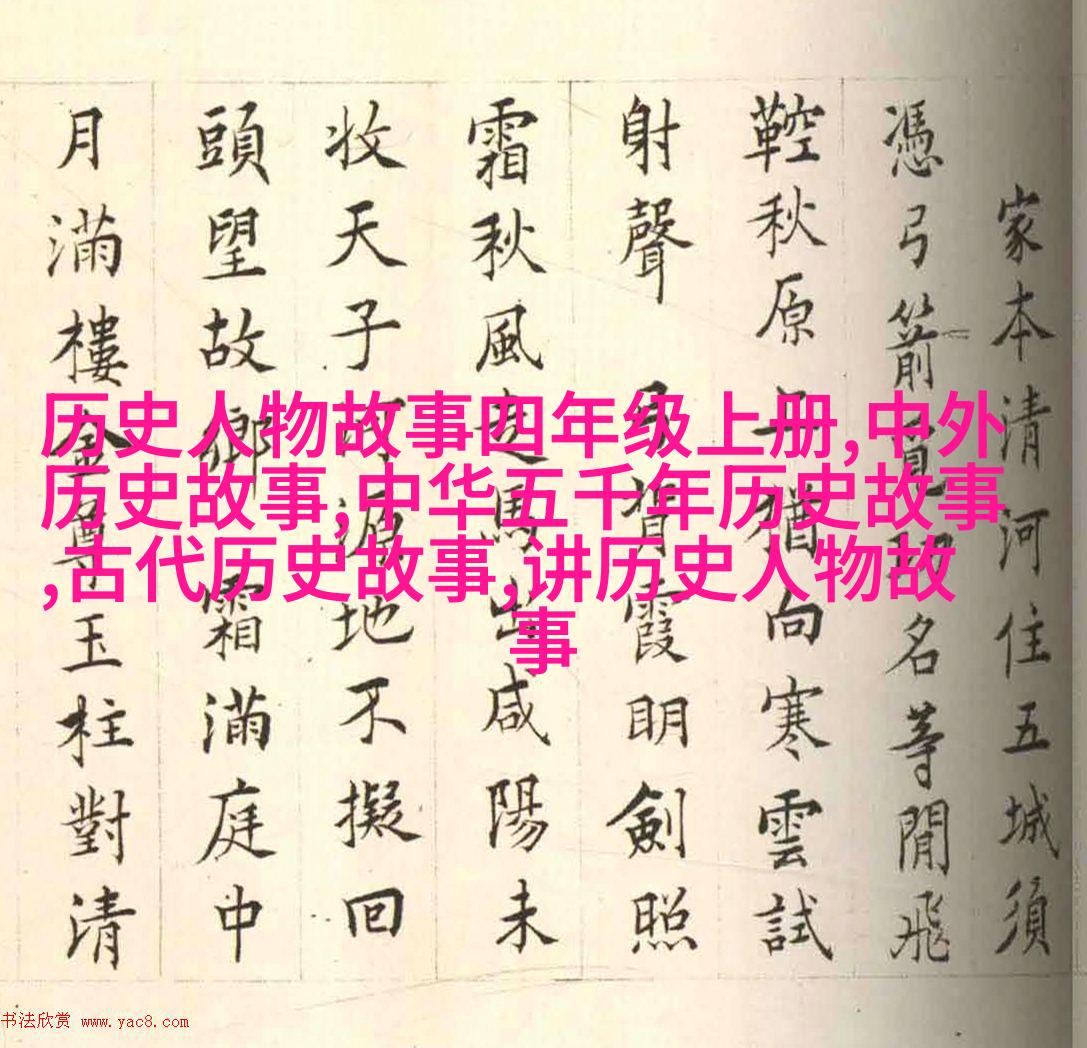 家本清河住五城須
憑弓箭名等閒飛
鞚秋原上猶向寒雲試
射聲 弓背霞明劍照
霜秋風走馬出咸陽未
收天子河源地不擬回
頭望故鄉霜滿庭中
月滿樓金尊玉柱對清
历史人物故事四年级上册,中外
历史故事,中华五千年历史故事
,古代历史故事,讲历史人物故
事
书法欣赏 www.yac8.com